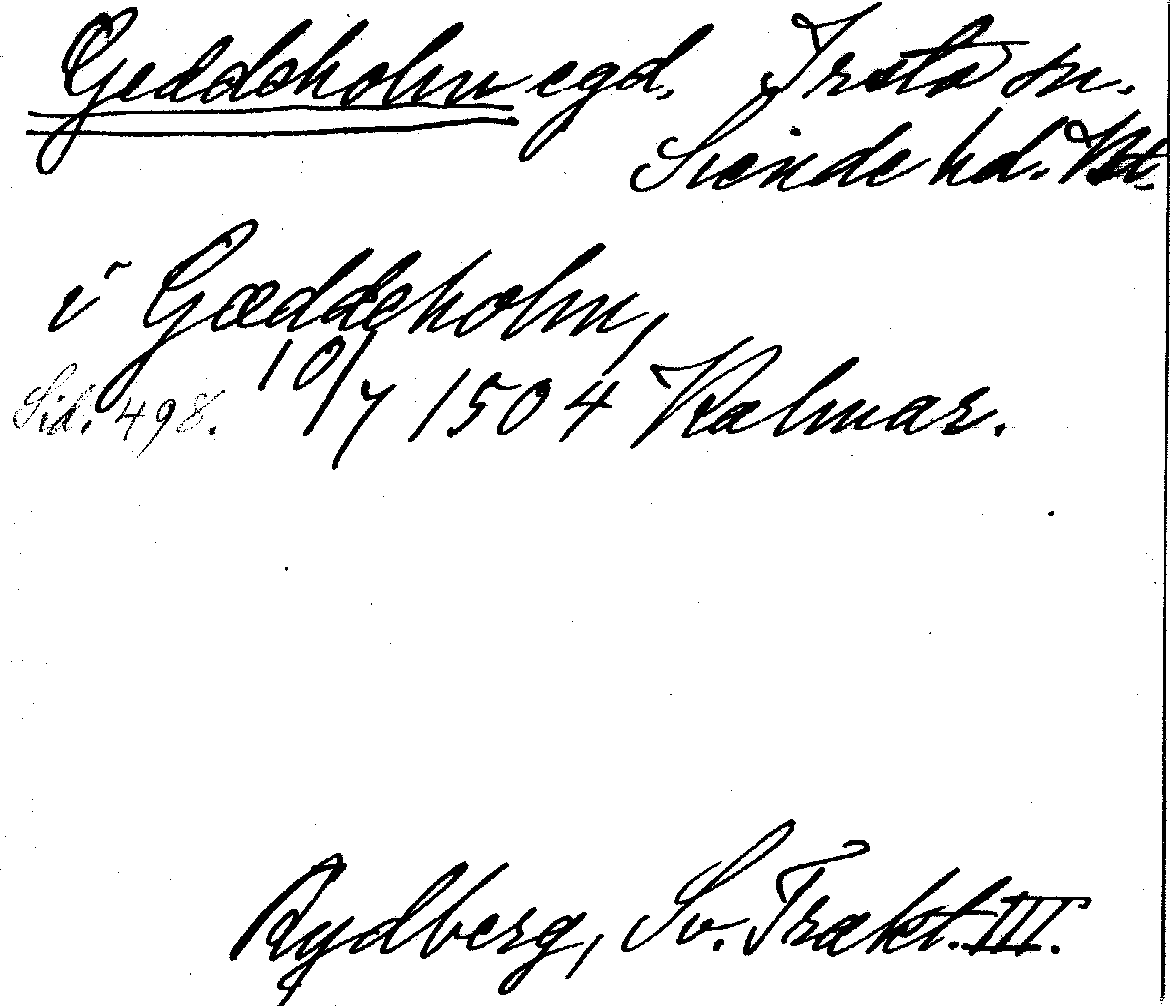 Geddeholm egd. Irsta sn.
Siende hd. Vstm.
i Gæddeholm,
Sid. 498. 10/7 1504 Kalmar.
Rydberg, Sv. Trakt. III.